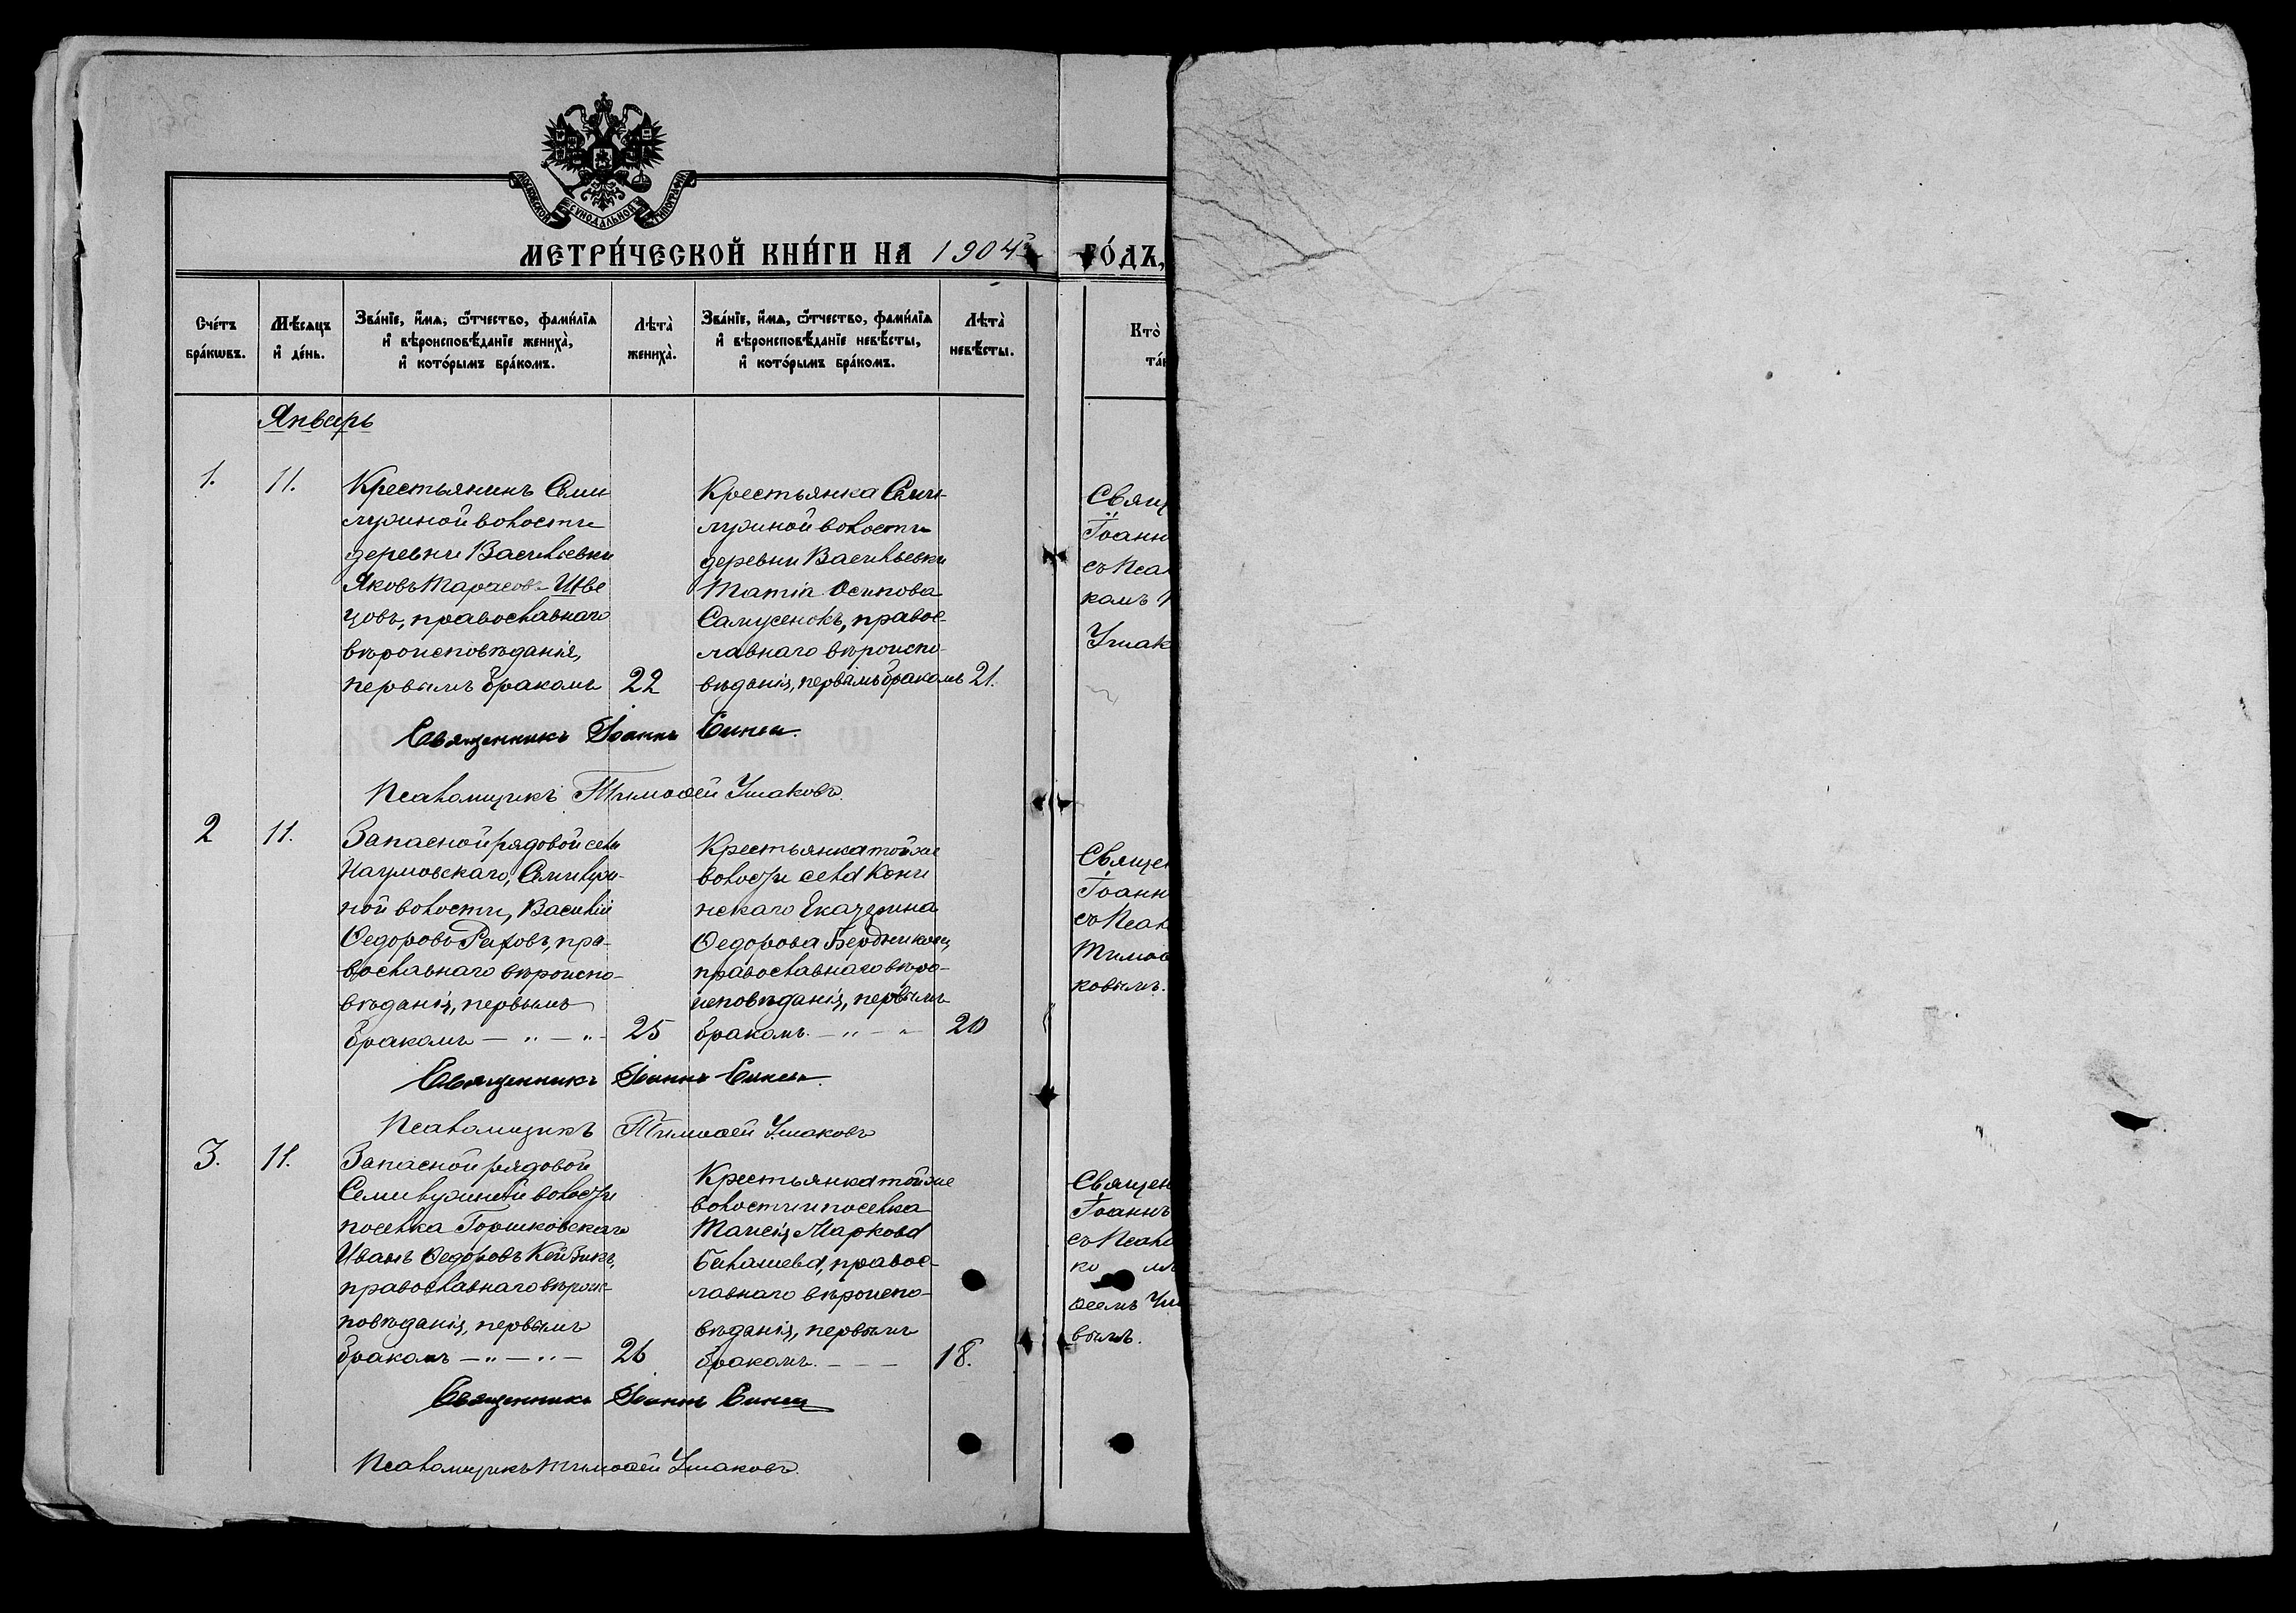 МОСКОВСКОЙ СѴНОДАЛЬНОЙ ТИПОГРАФІИ
МЕТРИ́ЧЕСКОЙ КНИ́ГИ НА 1904 ГО́ДЪ,
Сче́тъ бра́кѡвъ.
Мѣ́сѧцъ и҆ де́нь.
Зва́нїе, и҆́мѧ, ѻ҆́тчество, фами́лїѧ и҆ вѣроисповѣ́данїе жениха̀, и҆ кото́рымъ бра́комъ.
Лѣ́та жениха̀.
Зва́нїе, и҆́мѧ, ѻ҆́тчество, фами́лїѧ и҆ вѣроисповѣ́данїе невѣ́сты, и҆ кото́рымъ бра́комъ.
Лѣ́та невѣ́сты.
Кто̀
Январь
1.
11.
Крестьянинъ Семи
лужиной волости
деревни Васильевки
Яковъ Тарасовъ Шве
цовъ, православнаго
вѣроисповѣданія,
первымъ бракомъ
22
Крестьянка Семи-
лужиной волости
деревни Васильевки
Осипова
Самусенокъ, правос-
лавнаго вѣроиспо-
вѣданія, первымъ бракомъ
21.
Свящ
Іоанн
съ Пса
комъ
Ушак
Священникъ Іоаннъ
Псаломщикъ Тимоѳей Ушаковъ.
2
11.
Запасной рядовой села
Наумовскаго, Семилужи-
ной волости, Василій
Ѳедоровъ пра-
вославнаго вѣроиспо-
вѣданія, первымъ
бракомъ — „ — „ -
25
Крестьянка той же
волости села Кони
нскаго Екатерина
Ѳедорова
православнаго вѣро-
исповѣданія, первымъ
бракомъ. — „ — „
20
Священ
Іоанн
съ Псал
Тимоѳ
ковымъ.
Священникъ Іоаннъ
Псаломщикъ Тимоѳей Ушаковъ
3.
11.
Запасной рядовой
Семилужиной волости
поселка Горшковскаго
Иванъ Ѳедоровъ
православнаго вѣроис-
повѣданія, первымъ
бракомъ — „ — „ —
26
Крестьянка той же
волости и поселка
Таисія Маркова
правос-
лавнаго вѣроиспо-
вѣданія, первымъ
бракомъ. — — —
18.
Священ
Іоаннъ
съ Псало
ко мъ
ѳеемъ Уш
вымъ.
Священникъ Іоаннъ
Псаломщикъ Тимоѳей Ушаковъ.